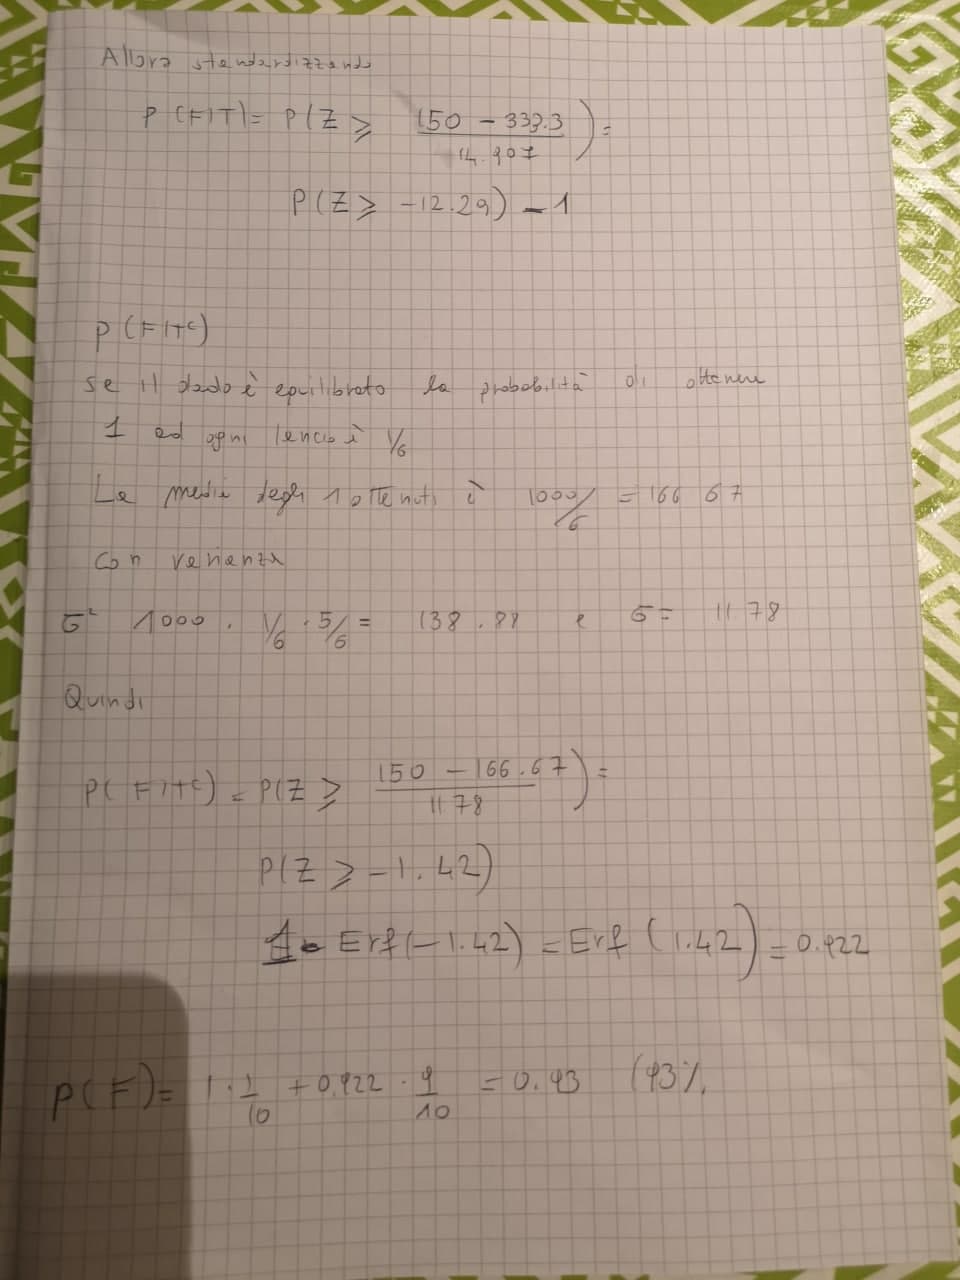 Allora standardizzando
P(F|T) = P(Z ⩾ (150 - 333.3)/14.907) =
P(Z ⩾ -12.29) - 1
P(F|T^c)
Se il dado è equilibrato la probabilità di ottenere
1 ad ogni lancio è 1/6
La media degli 1 ottenuti è 1000/6 = 166 67
Con varianza
σ² 1000 · 1/6 · 5/6 = 138.88 e σ = 11 78
Quindi
P(F|T^c) = P(Z ⩾ (150 - 166.67)/11 78) =
P(Z ⩾ -1.42)
1 - Erf(-1.42) = Erf(1.42) = 0.922
P(F) = 1 · 1/10 + 0.922 · 9/10 = 0.93 (93%